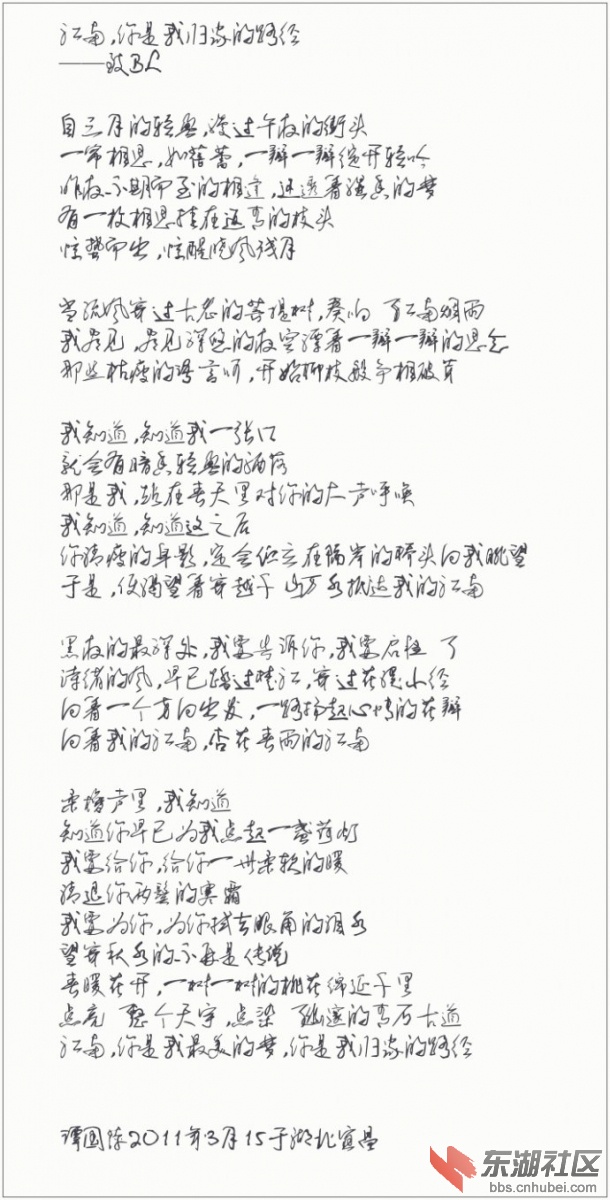 江南，你是我归家的路径
——致BL
自三月的轻盈，穿过午夜的街头
一帘相思，如蓓蕾，一瓣一瓣绽开轻吟
昨夜不期而至的相逢，还透着馥香的梦
有一枚相思挂在返青的枝头
惊艳而出，惊醒晓风残月
当流风穿过古老的菩提树，奏响了江南烟雨
我看见，看见深悠的夜空漂着一瓣一瓣的思念
那些枯瘦的语言呀，开始柳枝般争相破芽
我知道，知道我一张口
就会有暗香轻盈的洒落
那是我，站在春天里对你的大声呼唤
我知道，知道这之后
你清瘦的身影，定会伫立在隔岸的桥头向我眺望
于是，便渴望着穿越千山万水抵达我的江南
黑夜的最深处，我要告诉你，我要启程了
诗绪的风，早已越过楚江，穿过花堤小径
向着一个方向出发，一路扬起心情的花瓣
向着我的江南，杏花春雨的江南
桨橹声里，我知道
知道你早已为我点起一盏荷灯
我要给你，给你一世柔软的暖
清退你两鬓的寒霜
我要为你，为你拭去眼角的泪水
望穿秋水的不再是传说
春暖花开，一树一树的桃花绵延千里
点亮了整个天宇，点染了幽邃的青石古道
江南，你是我最美的梦，你是我归家的路径
谭国陈2011年3月15于湖北宜昌
东湖社区
bbs.cnhubei.com